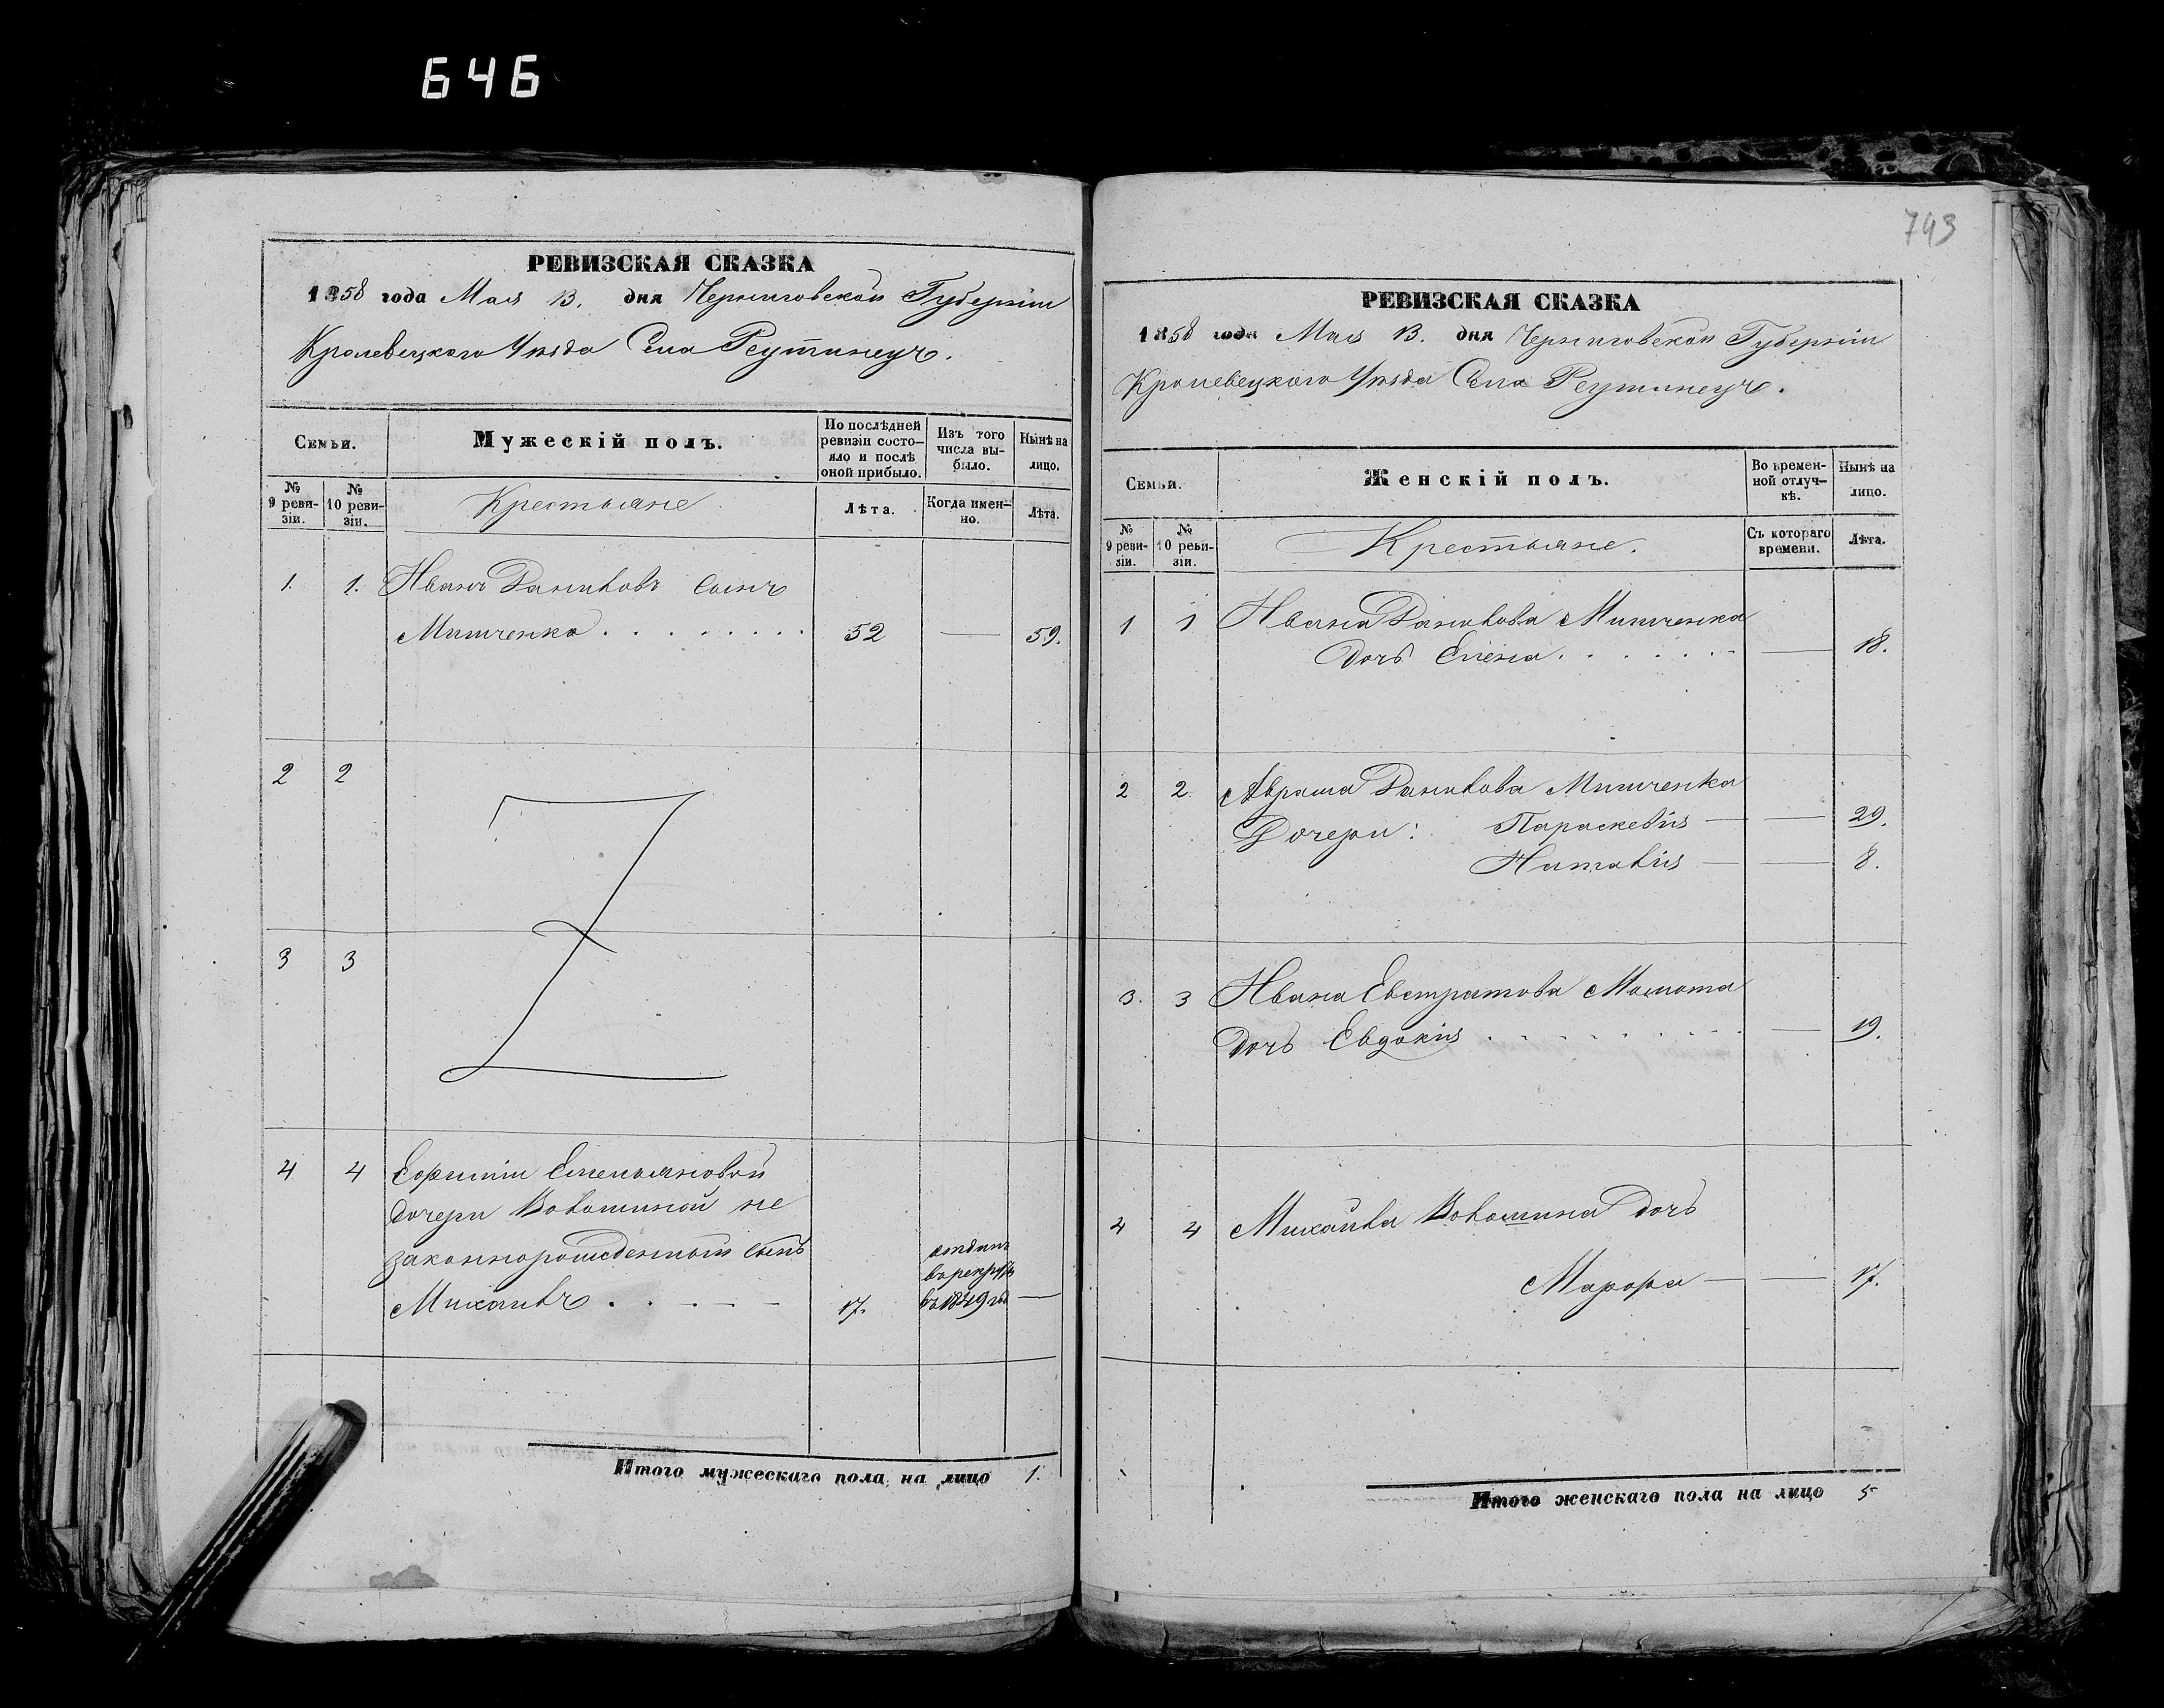 646
РЕВИЗСКАЯ СКАЗКА
1858 года Мая 13. дня Черниговской Губернiи
Кролевецкаго Уѣзда Села Реутинецъ.
Семьи.
Мужескiй полъ.
По послѣдней ревизiи состояло и послѣ оной прибыло.
Изъ того числа выбыло.
Нынѣ на лицо.
№ 9 ревизiи.
№ 10 ревизiи.
Крестьяне
Лѣта.
Когда именно.
Лѣта.
1. 1. Иванъ Даниловъ сынъ
Мищенко . . . . . . . . 52 — 59.
2 2
3 3
4 4 Емельяновой
дочери Волошиной не
законнорожденный сынъ
Михаилъ . . . — — 17. отданъ в рекруты въ 1849 год —
Итого мужескаго пола на лицо 1.
743
РЕВИЗСКАЯ СКАЗКА
1858 года Мая 13. дня Черниговской Губернiи
Кролевецкаго Уѣзда Села Реутинецъ.
Семьи.
Женскiй полъ.
Во временной отлучкѣ.
Нынѣ на лицо.
№ 9 ревизiи.
№ 10 ревизiи.
Крестьяне.
Съ котораго времени.
Лѣта.
1 1 Ивана Данилова Мищенка
дочь Елена. . . . . . . — 18.
2 2. Аврама Данилова Мищенка
Дочери: Параскевiя — — 29.
Наталiя — — 8.
3. 3 Ивана Евстратова Мамота
дочь Евдокiя . . . . . . . . — 19.
4 4 Михайла Волошина дочь
Марфа — — 17.
Итого женскаго пола на лицо 5